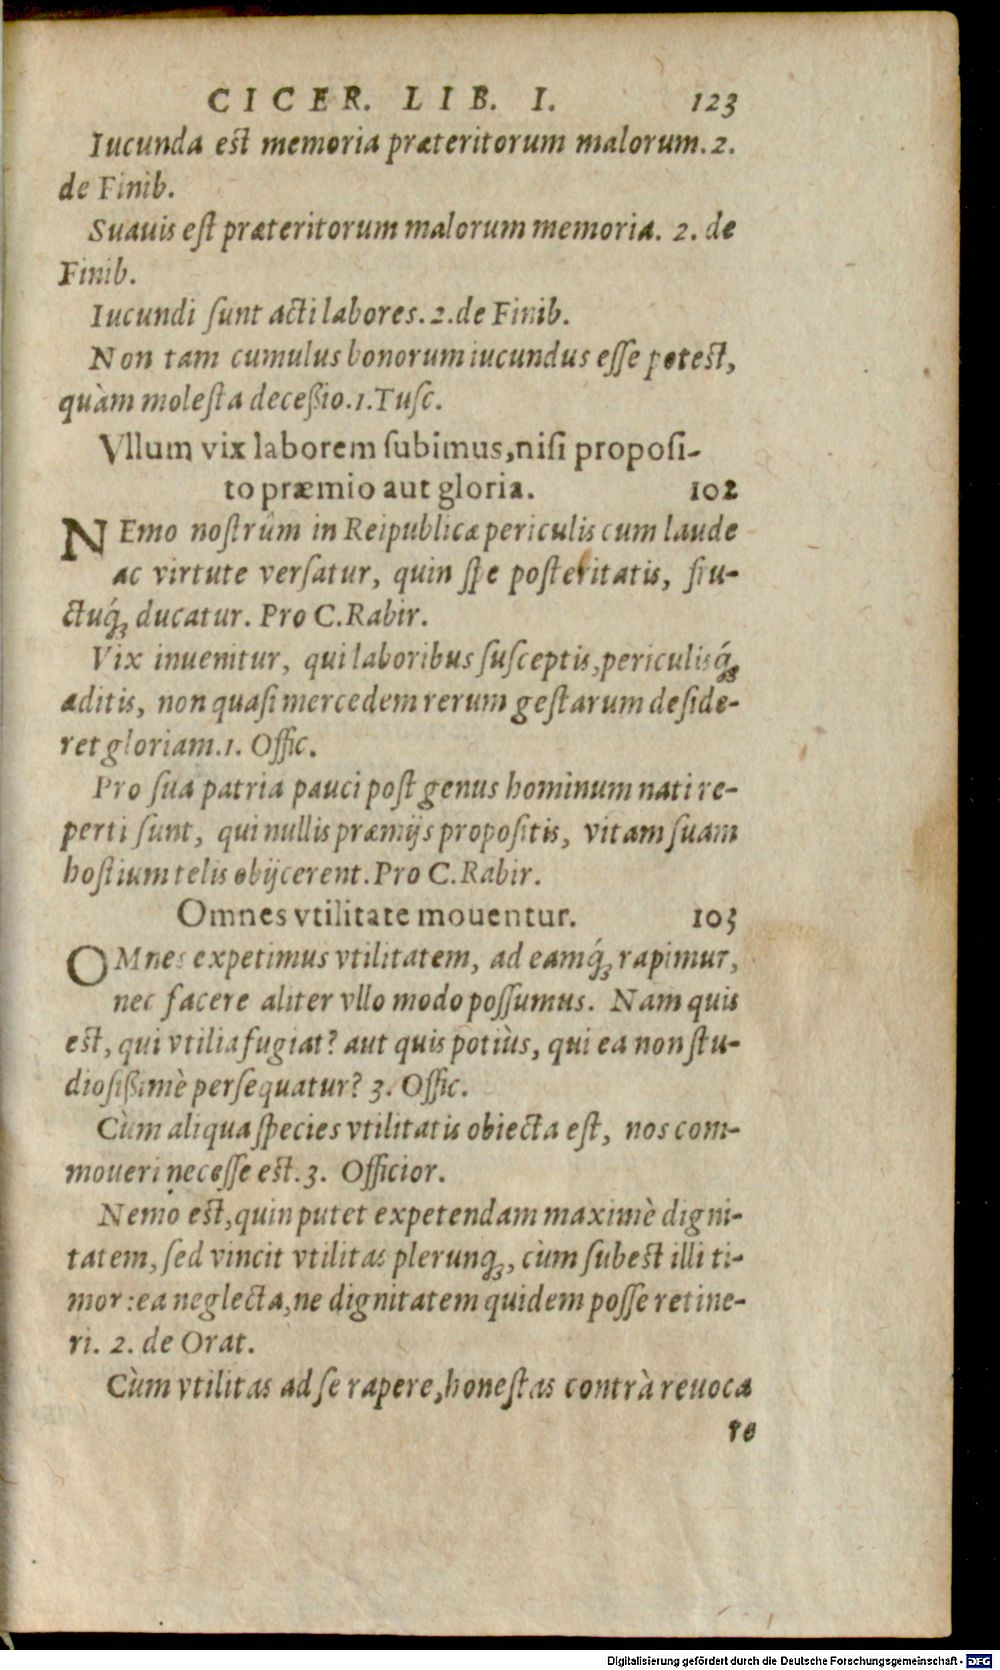 CICER. LIB. I. 123
Iucunda est memoria præteritorum malorum. 2.
de Finib.
Suauis est præteritorum malorum memoria. 2. de
Finib.
Iucundi sunt acti labores. 2. de Finib.
Non tam cumulus bonorum iucundus esse potest,
quàm molesta deceßio. 1. Tusc.
Vllum vix laborem subimus, nisi proposi-
to præmio aut gloria. 102
NEmo nostrûm in Reipublicæ periculis cum laude
ac virtute versatur, quin spe posteritatis, fru-
ctuq́ꝫ ducatur. Pro C. Rabir.
Vix inuenitur, qui laboribus susceptis, periculisq́ꝫ
aditis, non quasi mercedem rerum gestarum deside-
ret gloriam. 1. Offic.
Pro sua patria pauci post genus hominum nati re-
perti sunt, qui nullis præmijs propositis, vitam suam
hostium telis obijcerent. Pro C. Rabir.
Omnes vtilitate mouentur. 103
OMnes expetimus vtilitatem, ad eamq́ꝫ rapimur,
nec facere aliter vllo modo possumus. Nam quis
est, qui vtilia fugiat? aut quis potiùs, qui ea non stu-
diosißimè persequatur? 3. Offic.
Cùm aliqua species vtilitatis obiecta est, nos com-
moueri necesse est. 3. Officior.
Nemo est, quin putet expetendam maximè digni-
tatem, sed vincit vtilitas plerunqꝫ, cùm subest illi ti-
mor: ea neglecta, ne dignitatem quidem posse retine-
ri. 2. de Orat.
Cùm vtilitas ad se rapere, honestas contrà reuoca
re
Digitalisierung gefördert durch die Deutsche Forschungsgemeinschaft - DFG